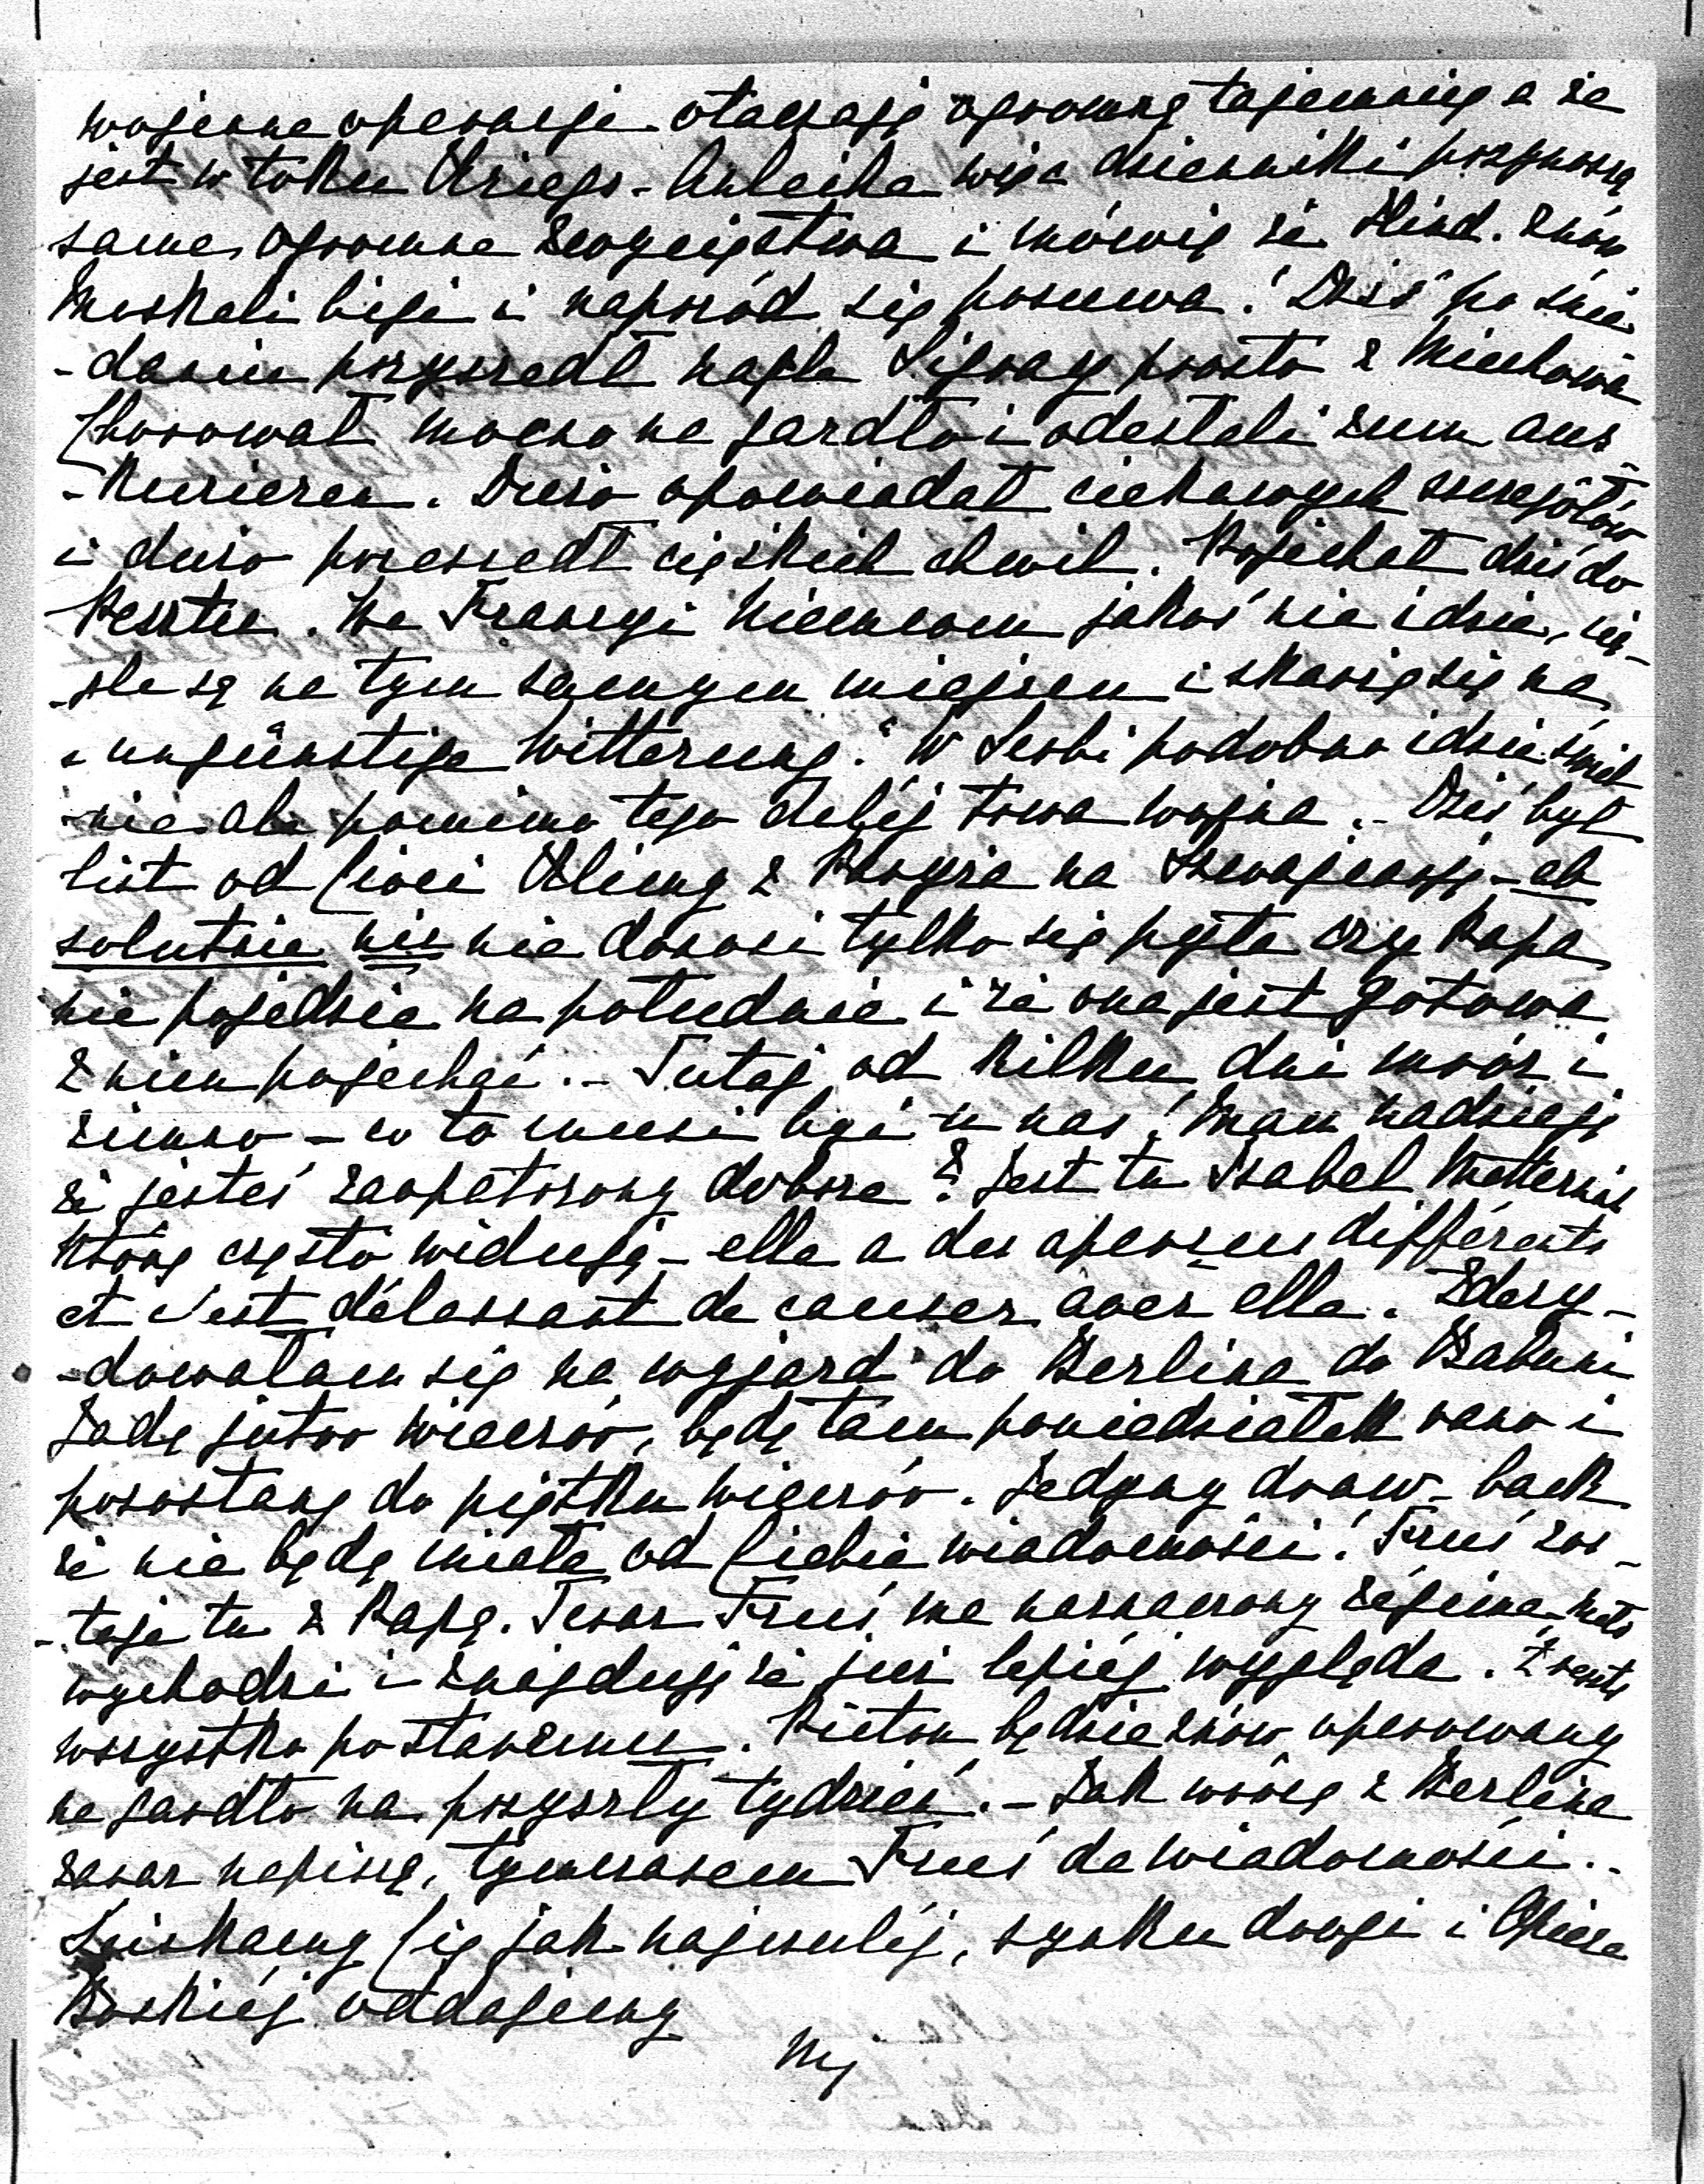 wojenne operacje otaczają ogromną tajemnicą a że
jest w toku Kriegs-Anleihe więc dzienniki przynoszą
same ogromne zwycięstwa i mówią że Hind. znów
Moskali bije i naprzód się posuwa! Dziś po śnia-
-daniu przyszedł nagle Sigray prosto z Miechowa
Chorował mocno na gardło i odesłali zum aus-
-kurieren. Dużo opowiadał ciekawych szczegółów
i dużo przeszedł ciężkich chwil. Pojechał dziś do
Pesztu. We Francyi Niemcom jakoś nie idzie, cią-
-gle są na tym samym miejscu i skarżą się na
„ungünstige Witterung." W Serbi podobno idzie świet
-nie ale pomimo tego dalej trwa wojna. - Dziś był
list od Cioci Klimy z Paryża na Szwajcarję - ab
solutnie nic nie donosi tylko się pyta czy Papa
nie pojedzie na południe i że ona jest gotowa
z nim pojechać. - Tutaj od kilku dni mróz i
zimno - co to musi być u nas! Mam nadzieję
że jesteś zaopatrzony dobrze? Jest tu Isabel Metternich
którą często widuję - elle a des aperçus différents
et c'est délassant de causer avec elle. Zdecy-
-dowałam się na wyjazd do Berlina do Babuni
Jadę jutro wieczór, będę tam poniedziałek rano i
pozostanę do piątku wieczór. Jedyny draw-back
że nie będę miała od Ciebie wiadomości! Fruś zos-
-taje tu z Papą. Teraz Fruś ma naznaczony régime, mało
wychodzi i znajduję że już lepiej wygląda. Zresztą
wszystko po staremu. Pieton będzie znów operowany
na gardło na przyszły tydzień. - Jak wrócę z Berlina
zaraz napiszę, tymczasem Fruś da wiadomości. -
Ściskamy Cię jak najczulej, synku drogi i Opiece
Boskiéj oddajemy